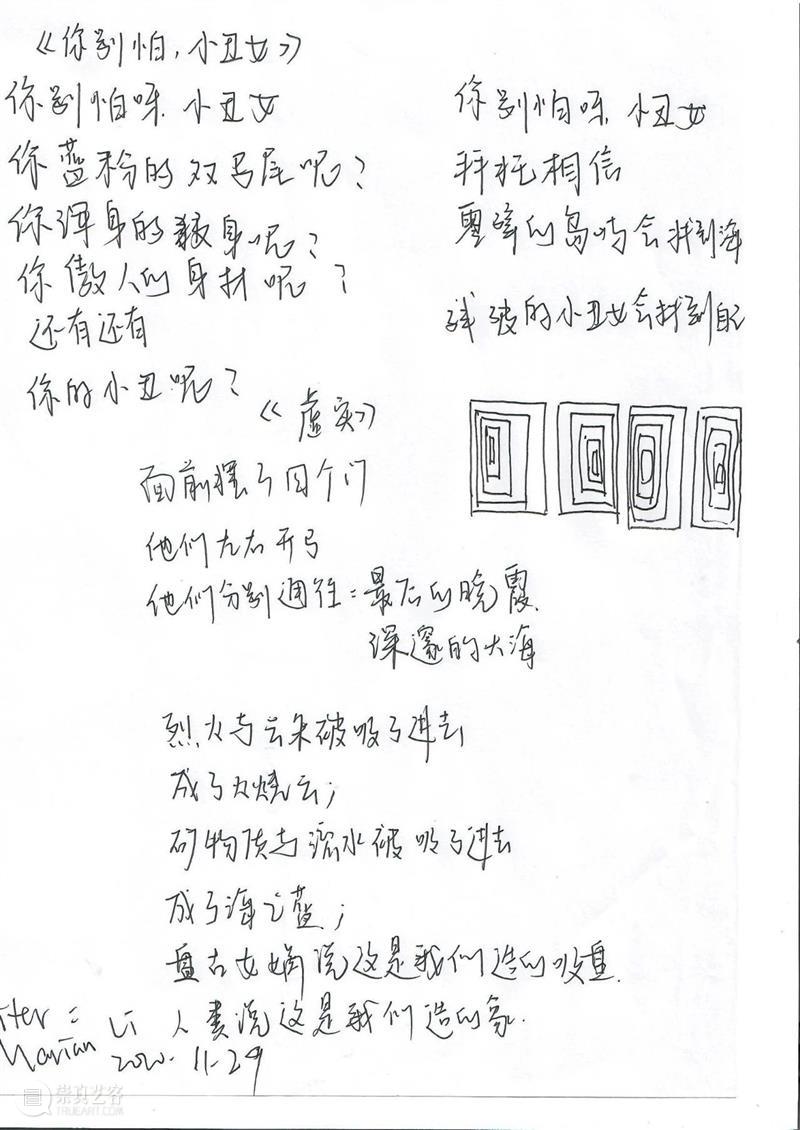 《你别怕,小丑女》
你别怕呀 小丑女
你蓝粉的双马尾呢?
你浑身的纹身呢?
你傲人的身材呢?
还有还有
你的小丑呢?
你别怕呀 小丑女
拜托相信
的岛屿会找到海
残破的小丑女会找到自己
《虚实》
面前摆了四个门
他们左右开弓
他们分别通往:最后的晚霞
深邃的大海
烈火与云朵被吸了进去
成了火烧云;
矿物质与 水被吸了进去
成了海之蓝;
盘古女娲说这是我们造的吸盘
人类说这是我们造的家.
iter:
Li
2020.11-29
崇真艺客
TRUEART.COM